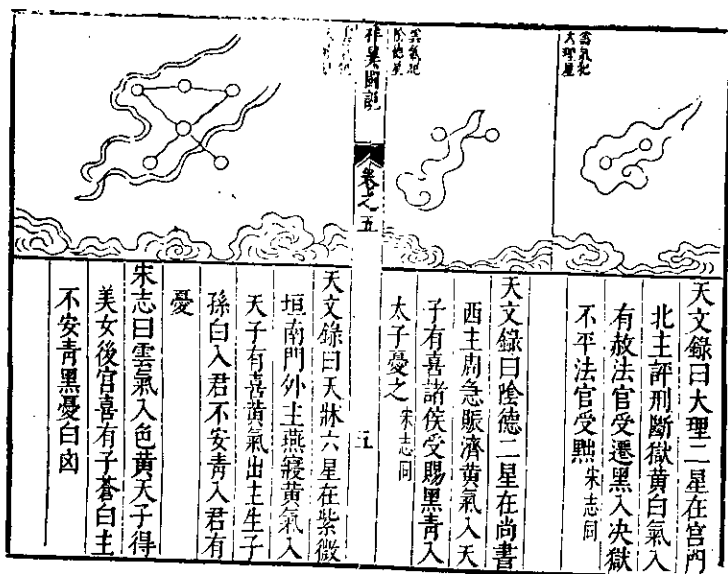 雲氣犯
大理星
天文錄曰大理二星在宫門
北主評刑斷獄黃白氣入
有赦法官受遷黑入决獄
不平法官受黜宋志同
雲氣犯
陰德星
天文錄曰陰德二星在尚書
西主周急賑濟黃氣入天
子有喜諸侯受賜黑青入
太子憂之宋志同
祥異圖說
卷之五
五
天文錄曰天牀六星在紫微
垣南門外主燕寢黃氣入
天子有喜黃氣出主生子
孫白入君不安青入君有
憂
宋志曰雲氣入色黃天子得
美女後宫喜有子蒼白主
不安青黑憂白凶